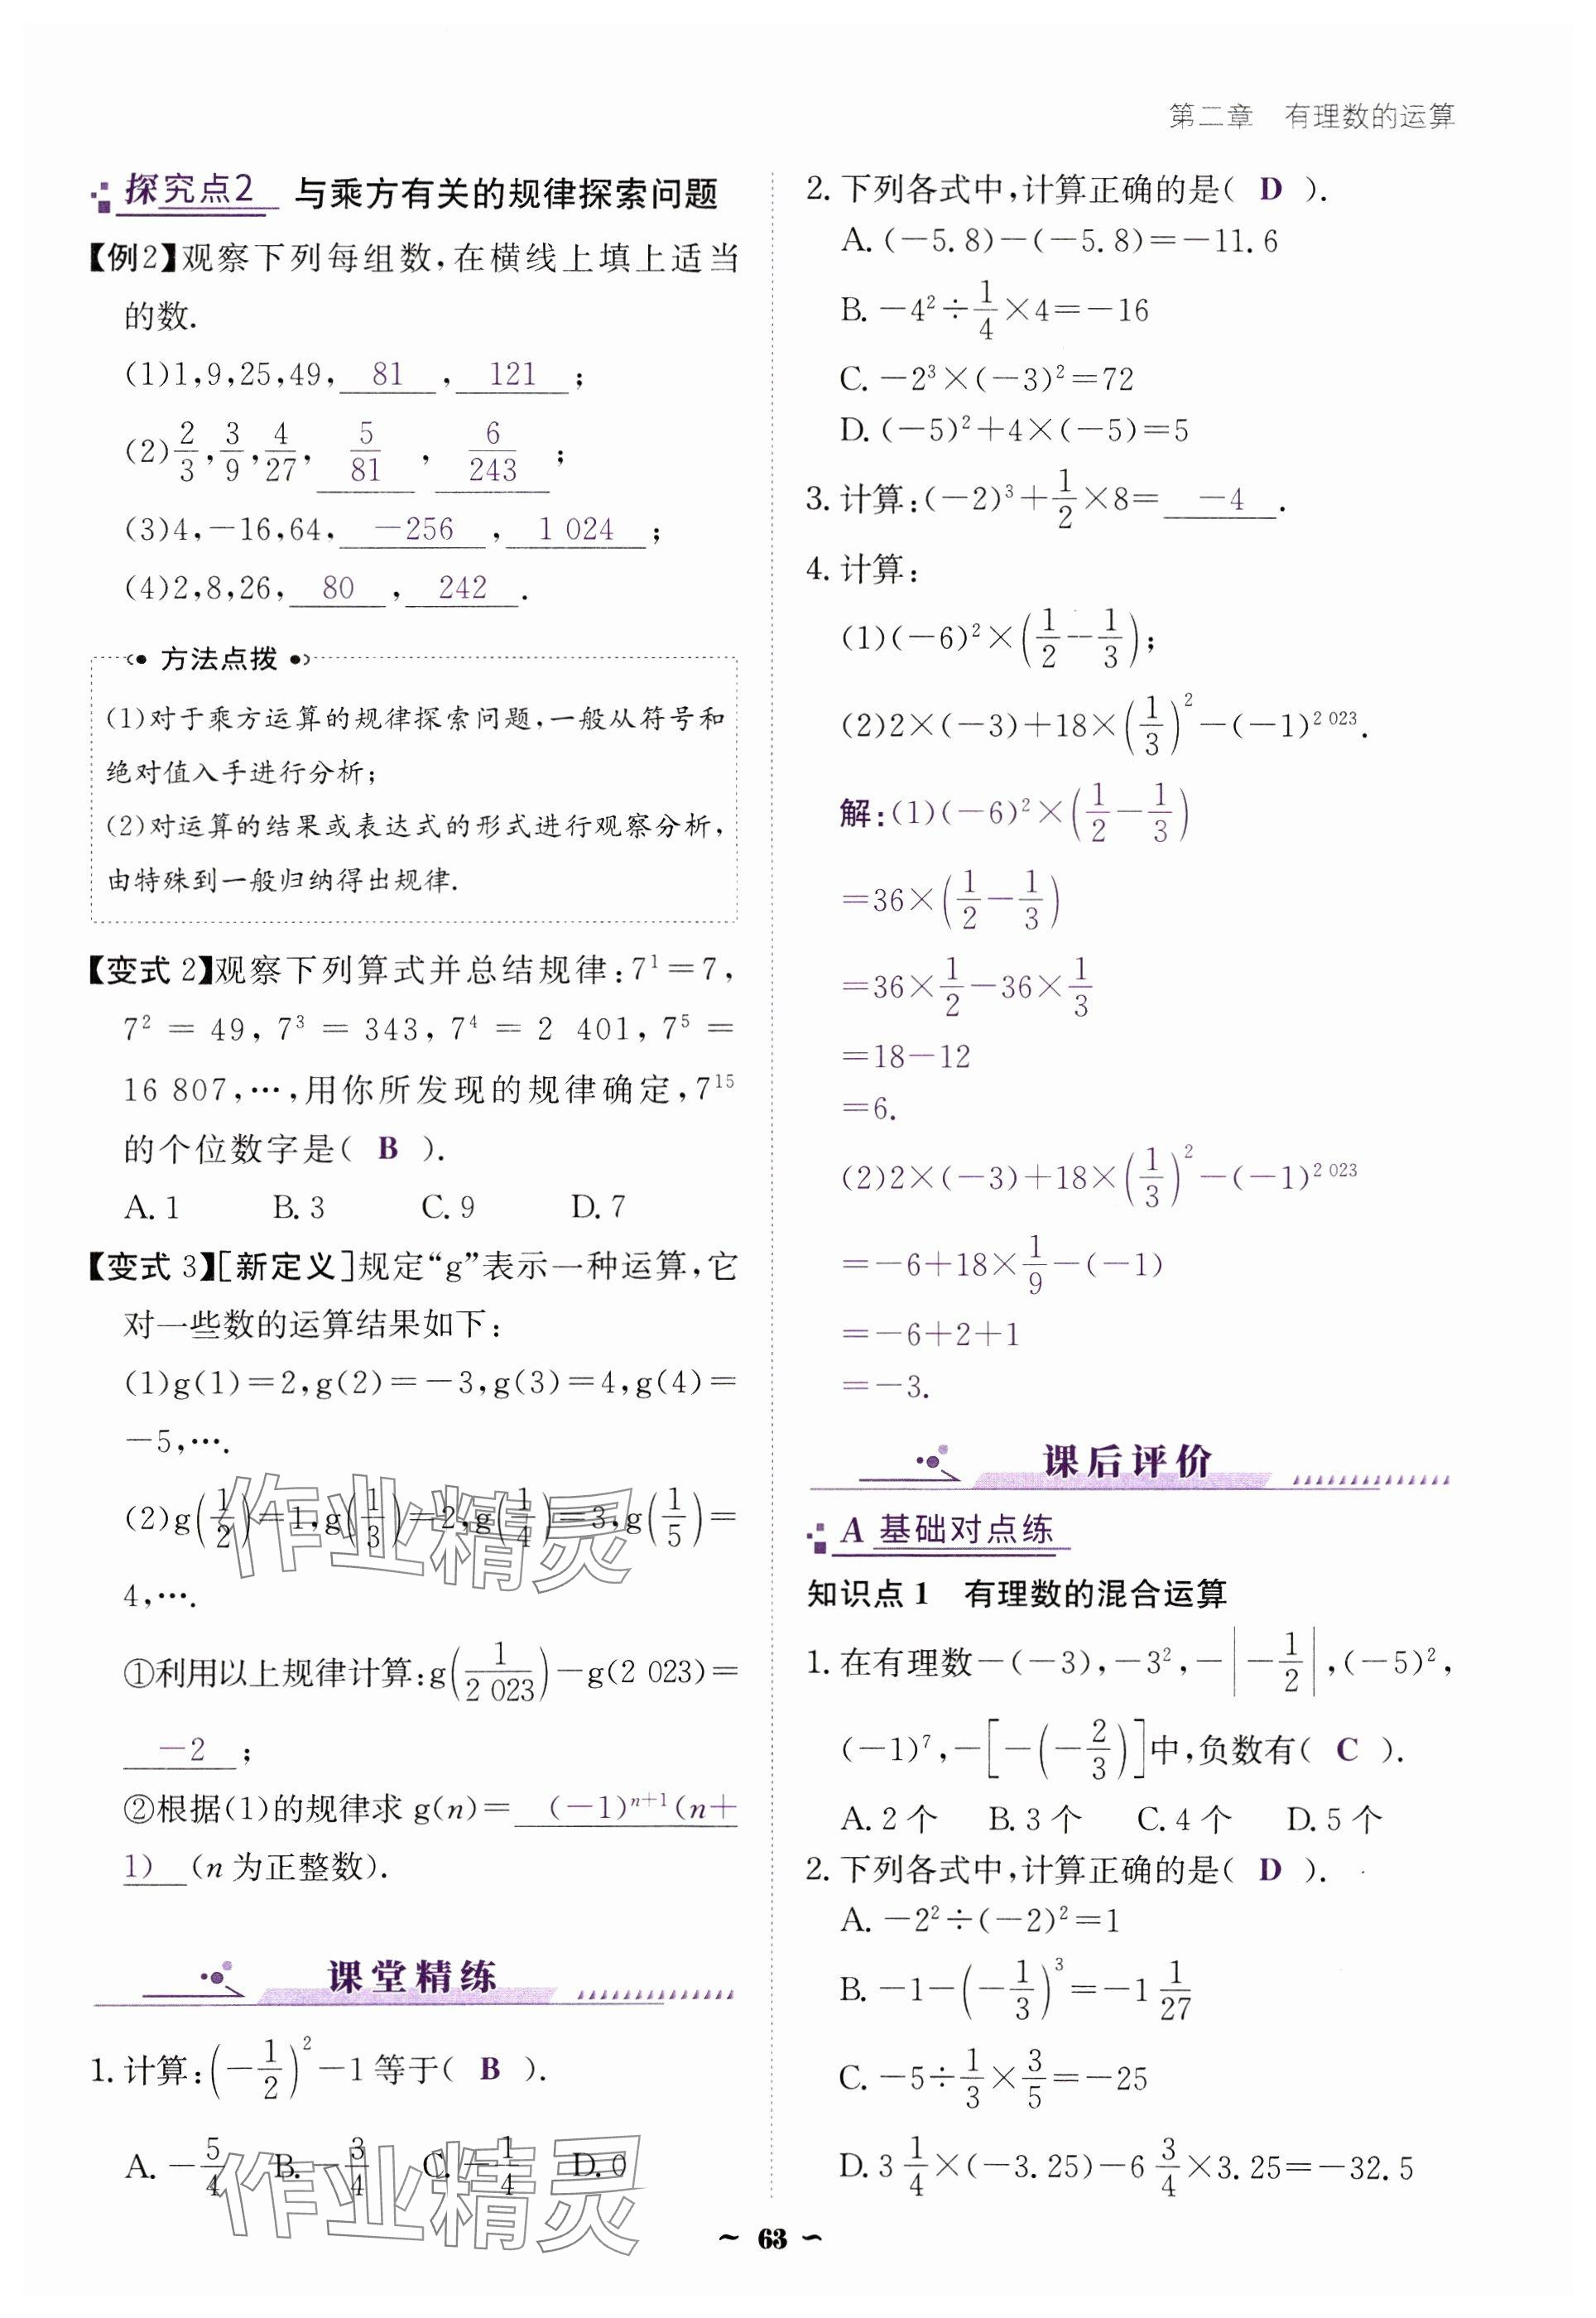 第二章　有理数的运算
探究点2　与乘方有关的规律探索问题
【例2】观察下列每组数,在横线上填上适当
的数.
(1)1,9,25,49, 81 , 121 ;
(2)2/3,3/9,4/27, 5/81 , 6/243 ;
(3)4,−16,64, −256 , 1 024 ;
(4)2,8,26, 80 , 242 .
方法点拨
(1)对于乘方运算的规律探索问题,一般从符号和
绝对值入手进行分析;
(2)对运算的结果或表达式的形式进行观察分析,
由特殊到一般归纳得出规律.
【变式 2】观察下列算式并总结规律:7¹=7,
7² = 49, 7³ = 343, 7⁴ = 2 401, 7⁵ =
16 807,…,用你所发现的规律确定,7¹⁵
的个位数字是( B ).
A. 1　B. 3　C. 9　D. 7
【变式 3】[新定义]规定“g”表示一种运算,它
对一些数的运算结果如下:
(1)g(1)=2,g(2)=−3,g(3)=4,g(4)=
−5,….
(2)g(1/2)=1,g(1/3)=2,g(1/4)=3,g(1/5)=
4,….
①利用以上规律计算:g(1/2 023)−g(2 023)=
−2 ;
②根据(1)的规律求 g(n)= (−1)ⁿ⁺¹(n+
1) (n 为正整数).
课堂精练
1. 计算:(−1/2)²−1 等于( B ).
A. −5/4　B. −3/4　C. −1/4　D. 0
2. 下列各式中,计算正确的是( D ).
A. (−5.8)−(−5.8)=−11.6
B. −4²÷1/4×4=−16
C. −2³×(−3)²=72
D. (−5)²+4×(−5)=5
3. 计算:(−2)³+1/2×8= −4 .
4. 计算:
(1)(−6)²×(1/2−1/3);
(2)2×(−3)+18×(1/3)²−(−1)²⁰²³.
解:(1)(−6)²×(1/2−1/3)
=36×(1/2−1/3)
=36×1/2−36×1/3
=18−12
=6.
(2)2×(−3)+18×(1/3)²−(−1)²⁰²³
=−6+18×1/9−(−1)
=−6+2+1
=−3.
课后评价
A 基础对点练
知识点 1　有理数的混合运算
1. 在有理数−(−3),−3²,−|−1/2|,(−5)²,
(−1)⁷,−[−(−2/3)]中,负数有( C ).
A. 2 个　B. 3 个　C. 4 个　D. 5 个
2. 下列各式中,计算正确的是( D ).
A. −2²÷(−2)²=1
B. −1−(−1/3)³=−1 1/27
C. −5÷1/3×3/5=−25
D. 3 1/4×(−3.25)−6 3/4×3.25=−32.5
~ 63 ~
作业精灵
作业精灵